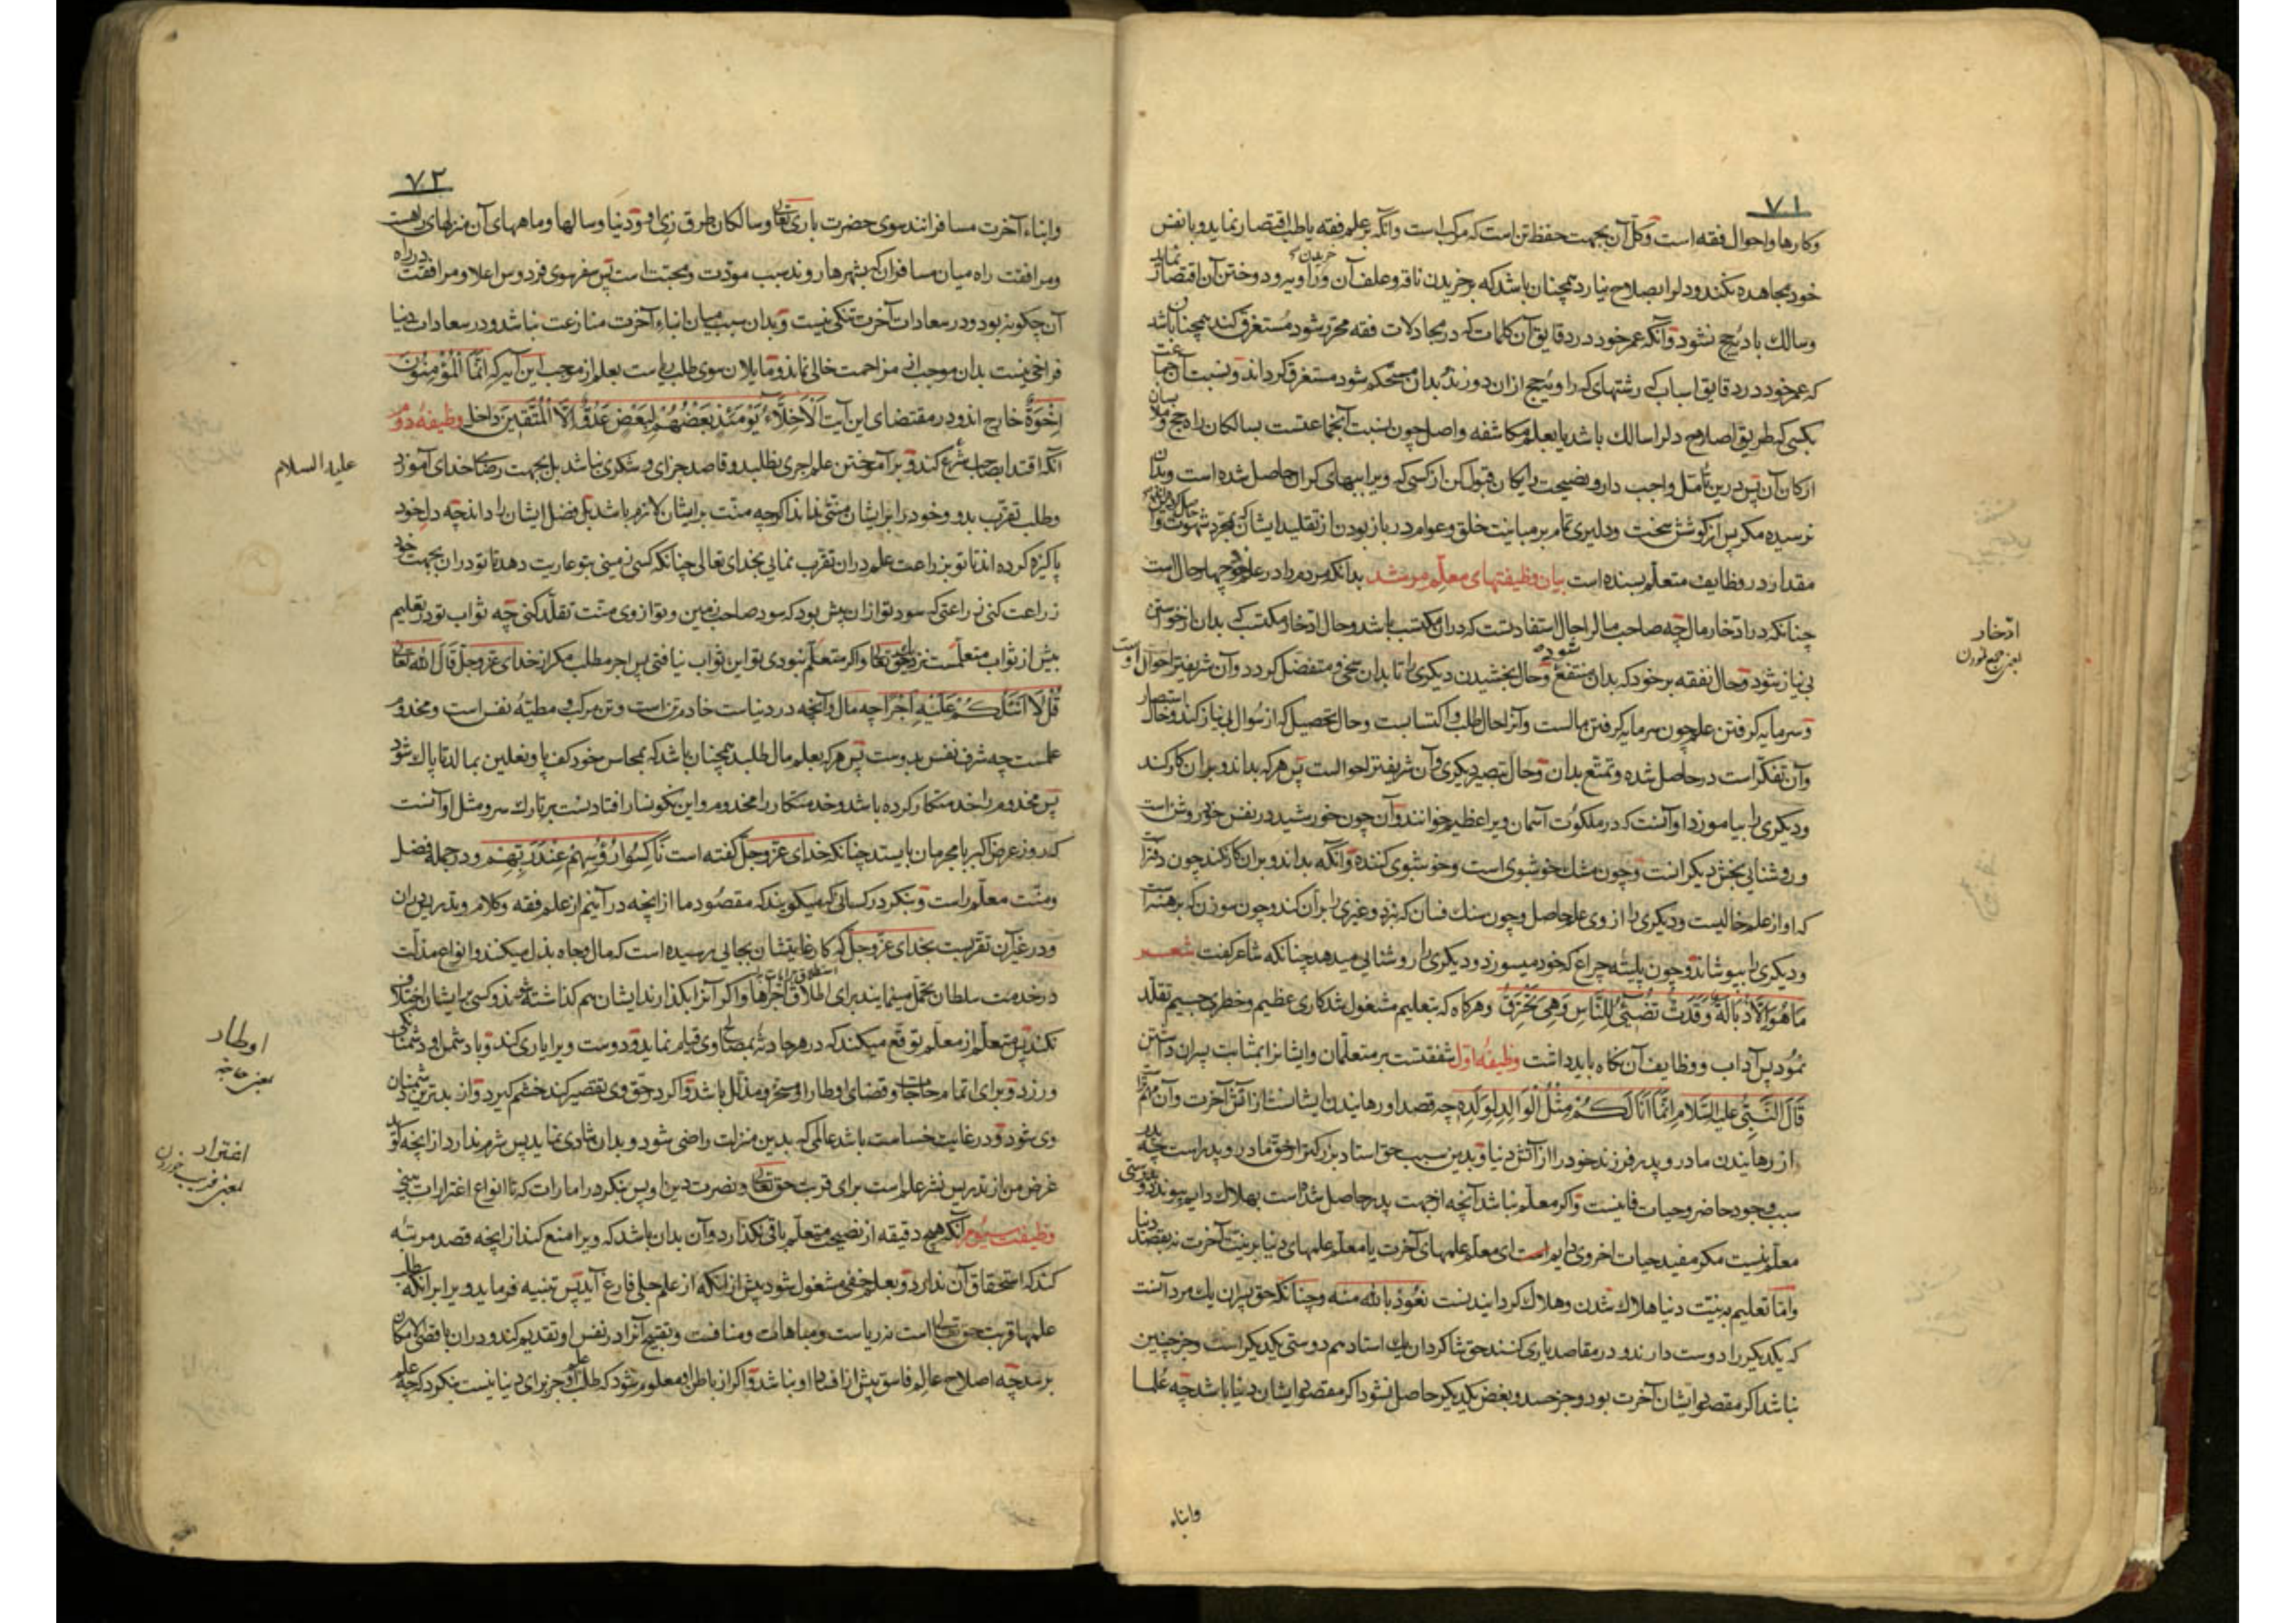 ۷۱
وکارها واحوال فقه است وکل آن بجهت حفظ تن است که مرکب است وآنکه بر علم فقه یا طب اقتصار نماید وبا نفس
خود مجاهده نکند ودل را بصلاح نیارد همچنان باشد که بر خریدن ناقه وعلف آن و راویه و دوختن آن اقتصار نماید
وسالك بادیه حج نشود وآنکه عمر خود در دقایق آن کلمات که در مجادلات فقه محرر شود مستغرق کند همچنان باشد
که عمر خود در دقایق اسباب که رشتهای که راویه حج ازان دوزند بدان مستحکم شود مستغرق کرداند ونسبت آن جماعت
بکسی که طریق اصلاح دل را سالك باشد یا بعلم مکاشفه واصل چون نسبت آنجماعتست بسالکان راه حج وملابسان
ارکان آن پس درین تأمل واجب دار و نصیحت رایکان قبول کن از کسی که ویرا ببهای کران حاصل شده است وبدان
نرسیده مکر پس از کوشش سخت ودلیری تمام بر مباینت خلق وعوام در باز بودن از تقلید ایشان بمجرد شهوت وا
مقدار در وظایف متعلم بسنده است بیان وظیفتهای معلم مرشد بدانکه مردم را در علم خود چهار حال است
چنانکه در ادخار مال چه صاحب مال را حال استفادتست که دران مکتسب باشد وحال ادخار مکتسب که بدان از خواستن
بی نیاز شود وحال نفقه بر خود که بدان منتفع شود وحال بخشیدن دیکری را تا بدان سخی ومتفضل کردد وآن شریفتر احوال اوست
وسرمایه کرفتن علم چون سرمایه کرفتن مالست وآنرا حال طلب واکتسابست وحال تحصیل که از سؤال بی نیاز کند وحال استبصار
وآن تفکر است در حاصل شده وتمتع بدان وحال تبصیر دیکری وآن شریفتر احوالست پس هرکه بداند وبران کار کند
ودیکری را بیاموزد او آنست که در ملکوت آسمان ویرا عظیم خوانند وآن چون خورشید در نفس خود روشن است
وروشنایی بخش دیکرانست وچون مشك خوشبوی است وخوشبوی کننده وآنکه بداند وبران کار نکند چون دفتر است
که او از علم خالیست ودیکری را از وی علم حاصل وچون سنك فسان که نبرد وغیری را بران کند وچون سوزن که برهنه است
ودیکری را بپوشاند وچون پلیته چراغ که خود میسوزد ودیکری را روشنایی میدهد چنانکه شاعر کفت شعر
ما هو الا ذبالة وقدت تضیٔ للناس وهی تحترق وهرکاه که بتعلیم مشغول شد کاری عظیم وخطری جسیم تقلد
نمود پس آداب ووظایف آن نکاه باید داشت وظیفه اول شفقتست بر متعلمان وایشانرا بمثابت پسران داشتن
قال النبی علیه السلام انما انا لکم مثل الوالد لولده چه قصد او رهانیدن ایشانست از آتش آخرت وآن مهم تر است
از رهانیدن مادر وپدر فرزند خود را از آتش دنیا وبدین سبب حق استاد بزرکتر از حق مادر و پدر است چه پدر
سبب وجود حاضر وحیات فانیست واکر معلم نباشد آنچه از جهت پدر حاصل شده است بهلاك دایم پیوندد وبدرستی
معلم نیست مکر مفید حیات اخروی دایم است ای معلم علمهای آخرت یا معلم علمهای دنیا بر نیت آخرت نه بقصد دنیا
واما تعلیم به نیت دنیا هلاك شدن وهلاك کردانیدنست نعوذ بالله منه وچنانکه حق پسران یك مرد آنست
که یکدیکر را دوست دارند ودر مقاصد یاری کنند حق شاکردان یك استاد هم دوستی یکدیکر است وجز چنین
نباشد اکر مقصود ایشان آخرت بود وجز حسد وبغض یکدیکر حاصل نشود اکر مقصود ایشان دنیا باشد چه علما
وابناء
ادخار
یعنی جمع نمودن
۷۲
وابناء آخرت مسافرانند سوی حضرت باری تعالی وسالکان طرق زی او ودنیا وسالها وماههای آن منزلهای راهست
ومرافقت راه میان مسافران که بشهرها روند سبب مودت ومحبت است پس سفر سوی فردوس اعلا ومرافقت در راه
آن چکونه بود ودر سعادات آخرت تنکی نیست وبدان سبب میان ابناء آخرت منازعت نباشد ودر سعادات دنیا
فراخی نیست بدان موجب از مزاحمت خالی نماند ومایلان سوی طلب ریاست بعلم از موجب این آیه که انما المؤمنون
اخوة خارج اند ودر مقتضای این آیت الاخلاء یومئذ بعضهم لبعض عدو الا المتقین داخل وظیفه دوم
آنکه اقتدا بصاحب شرع کند وبر آموختن علم اجری نطلبد وقاصد جزای وشکری نباشد بل بجهت رضای خدای آموزد
وطلب تقرب بدو وخود را بر ایشان منتی نداند اکرچه منت بر ایشان لازم باشد بل فضل ایشان را داند چه دل خود
پاکیزه کرده اند تا تو بزراعت علم دران تقرب نمایی بخدای تعالی چنانکه کسی زمینی بتو عاریت دهد تا تو دران بجهت خود
زراعت کنی زراعتی که سود تو ازان بیش بود که سود صاحب زمین وتو از وی منت تقلد کنی چه ثواب تو در تعلیم
بیش از ثواب متعلمست نزدیك حق تعالی واکر متعلم نبودی تو این ثواب نیافتی پس اجر مطلب مکر از خدای عز وجل قال الله تعالی
قل لا اسئلکم علیه اجرا چه مال وآنچه در دنیاست خادم تن است وتن مرکب و مطیه نفس است ومخدوم
علمست چه شرف نفس بدوست پس هرکه بعلم مال طلبد همچنان باشد که بمحاسن خود کف پا ونعلین بمالد تا پاك شود
پس مخدوم را خدمتکار کرده باشد وخدمتکار را مخدوم واین نکونسار افتادنست بر تارك سر ومثل او آنست
که روز عرض اکبر با مجرمان بایستد چنانکه خدای عز وجل کفته است ناکسوا رؤسهم عند ربهم ودر جمله فضل
ومنت معلم راست وبنکر در کسانی که میکویند که مقصود ما ازانچه در آنیم از علم فقه وکلام وتدریس دران
ودر غیر آن تقربست بخدای عز وجل که کار غایتشان بجایی رسیده است که مال وجاه بذل میکنند وانواع مذلت
در خدمت سلطان تحمل مینمایند برای اطلاق اجرها واکر آنرا بکذارند ایشان هم کذاشته شوند وکسی بر ایشان اختلاف
نکند پس متعلم از معلم توقع میکند که در هر حادثه بمصالح وی قیام نماید ودوست ویرا یاری کند وبا دشمن او دشمنی
ورزد وبرای اتمام حاجات وقضای اوطار او مسخر ومذلل باشد واکر در حق وی تقصیر کند خشم کیرد واز بدترین دشمنان
وی شود ودر غایت خساست باشد عالمی که بدین منزلت راضی شود وبدان شادی نماید پس شرم ندارد ازانچه کوید
غرض من از تدریس نشر علم است برای قربت حق تعالی ونصرت دین او پس بنکر در امارات که تا انواع اغترارات بینی
وظیفت سیوم آنکه هیچ دقیقه از نصیحت متعلم باقی نکذارد وآن بدان باشد که ویرا منع کند ازانچه قصد مرتبه
کند که استحقاق آن ندارد وبعلم خفی مشغول شود پیش ازانکه از علم جلی فارغ آید پس تنبیه فرماید ویرا برانکه طلب
علمها قربت حق تعالی است نه ریاست ومباهات ومنافست وتقبیح آنرا در نفس او تقدیم کند ودران باقصی الامکان
برسد چه اصلاح عالم فاسق پیش از افساد او نباشد واکر از باطن او معلوم شود که طلب او جز برای دنیا نیست بنکرد که چه علم
علیه السلام
اوطار
یعنی حاجة
اغترار
یعنی فریب خوردن